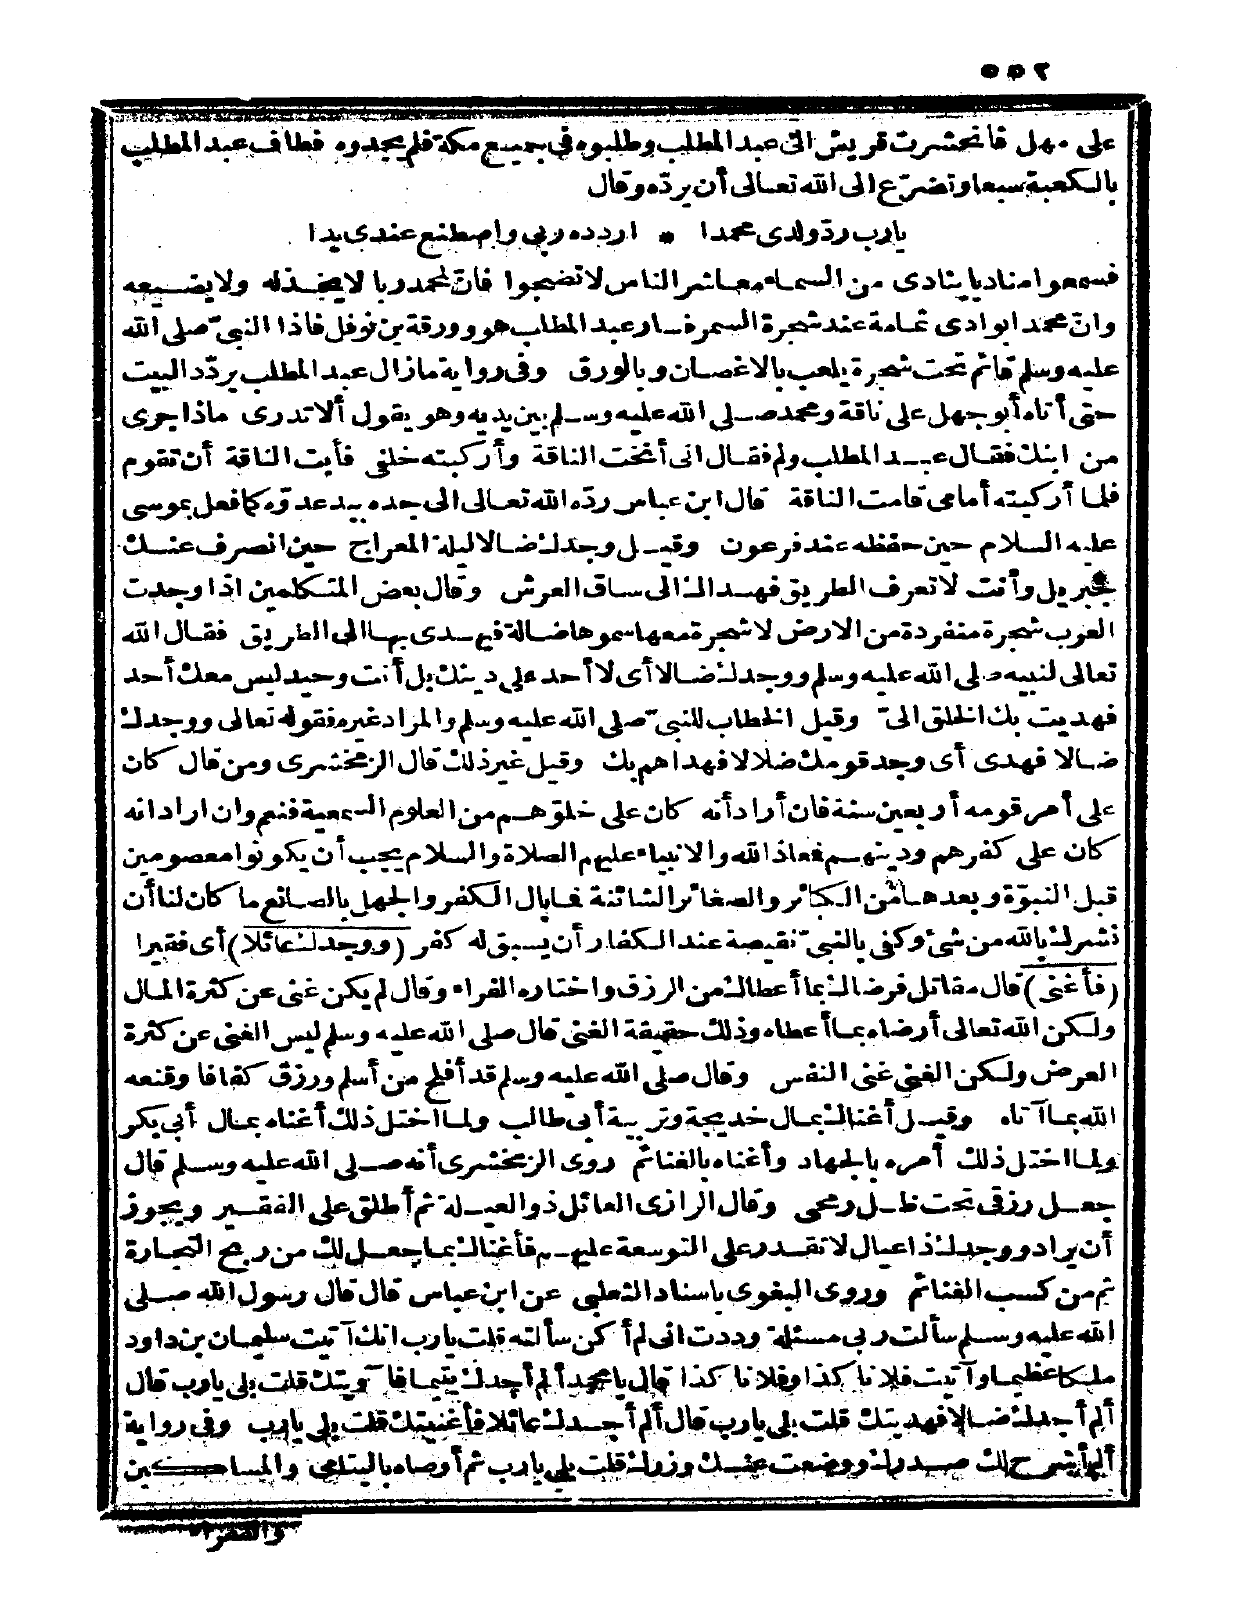 ٥٥٢
على مهل فانحشرت قريش الى عبد المطلب وطلبوه في جميع مكة فلم يجدوه فطاف عبد المطلب
بالكعبة سبعا وتضرّع الى الله تعالى أن يردّه وقال
يارب ردّ ولدى محمدا * اردده ربي واصطنع عندى يدا
فسمعوا مناديا ينادى من السماء معاشر الناس لا تضجوا فانّ لمحمد ربا لا يخذله ولا يضيعه
وانّ محمدا بوادى تهامة عند شجرة السمرة فسار عبد المطلب هو وورقة بن نوفل فاذا النبيّ صلى الله
عليه وسلم قائم تحت شجرة يلعب بالاغصان وبالورق وفى رواية ما زال عبد المطلب يردّد البيت
حتى أتاه أبو جهل على ناقة ومحمد صلى الله عليه وسلم بين يديه وهو يقول ألا تدرى ماذا جرى
من ابنك فقال عبد المطلب ولم فقال انى أنخت الناقة وأركبته خلفى فأبت الناقة أن تقوم
فلما أركبته أمامى قامت الناقة قال ابن عباس ردّه الله تعالى الى جده بيد عدوّه كما فعل بموسى
عليه السلام حين حفظه عند فرعون وقيل وجدك ضالا ليلة المعراج حين انصرف عنك
جبريل وأنت لا تعرف الطريق فهداك الى ساق العرش وقال بعض المتكلمين اذا وجدت
العرب شجرة منفردة من الارض لا شجرة معها سموها ضالة فيهتدى بها الى الطريق فقال الله
تعالى لنبيه صلى الله عليه وسلم ووجدك ضالا أى لا أحد على دينك بل أنت وحيد ليس معك أحد
فهديت بك الخلق الىّ وقيل الخطاب للنبيّ صلى الله عليه وسلم والمراد غيره فقوله تعالى ووجدك
ضالا فهدى أى وجد قومك ضلالا فهداهم بك وقيل غير ذلك قال الزمخشرى ومن قال كان
على أمر قومه أربعين سنة فان أراد أنه كان على خلوّهم من العلوم السمعية فنعم وان اراد انه
كان على كفرهم ودينهم فمعاذ الله والانبياء عليهم الصلاة والسلام يجب أن يكونوا معصومين
قبل النبوّة وبعدها من الكبائر والصغائر الشائنة فما بال الكفر والجهل بالصانع ما كان لنا أن
نشرك بالله من شئ وكفى بالنبيّ نقيصة عند الكفار أن يسبق له كفر (ووجدك عائلا) أى فقيرا
(فأغنى) قال مقاتل فرضاك بما أعطاك من الرزق واختاره الفراء وقال لم يكن غنى عن كثرة المال
ولكن الله تعالى أرضاه بما أعطاه وذلك حقيقة الغنى قال صلى الله عليه وسلم ليس الغنى عن كثرة
العرض ولكن الغنى غنى النفس وقال صلى الله عليه وسلم قد أفلح من أسلم ورزق كفافا وقنعه
الله بما آتاه وقيل أغناك بمال خديجة وتربية أبى طالب ولما اختل ذلك أغناه بمال أبى بكر
ولما اختل ذلك أمره بالجهاد وأغناه بالغنائم روى الزمخشرى أنه صلى الله عليه وسلم قال
جعل رزقى تحت ظل رمحى وقال الرازى العائل ذو العيلة ثم أطلق على الفقير ويجوز
أن يراد ووجدك ذا عيال لا تقدر على التوسعة عليهم فأغناك بما جعل لك من ربح التجارة
ثم من كسب الغنائم وروى البغوى باسناد الثعلبى عن ابن عباس قال قال رسول الله صلى
الله عليه وسلم سألت ربى مسئلة وددت انى لم أكن سألته قلت يارب انك آتيت سليمان بن داود
ملكا عظيما وآتيت فلانا كذا وفلانا كذا قال يا محمد ألم أجدك يتيما فآويتك قلت بلى يارب قال
ألم أجدك ضالا فهديتك قلت بلى يارب قال ألم أجدك عائلا فأغنيتك قلت بلى يارب وفى رواية
ألم أشرح لك صدرك ووضعت عنك وزرك قلت بلى يارب ثم أوصاه باليتامى والمساكين
والفقراء